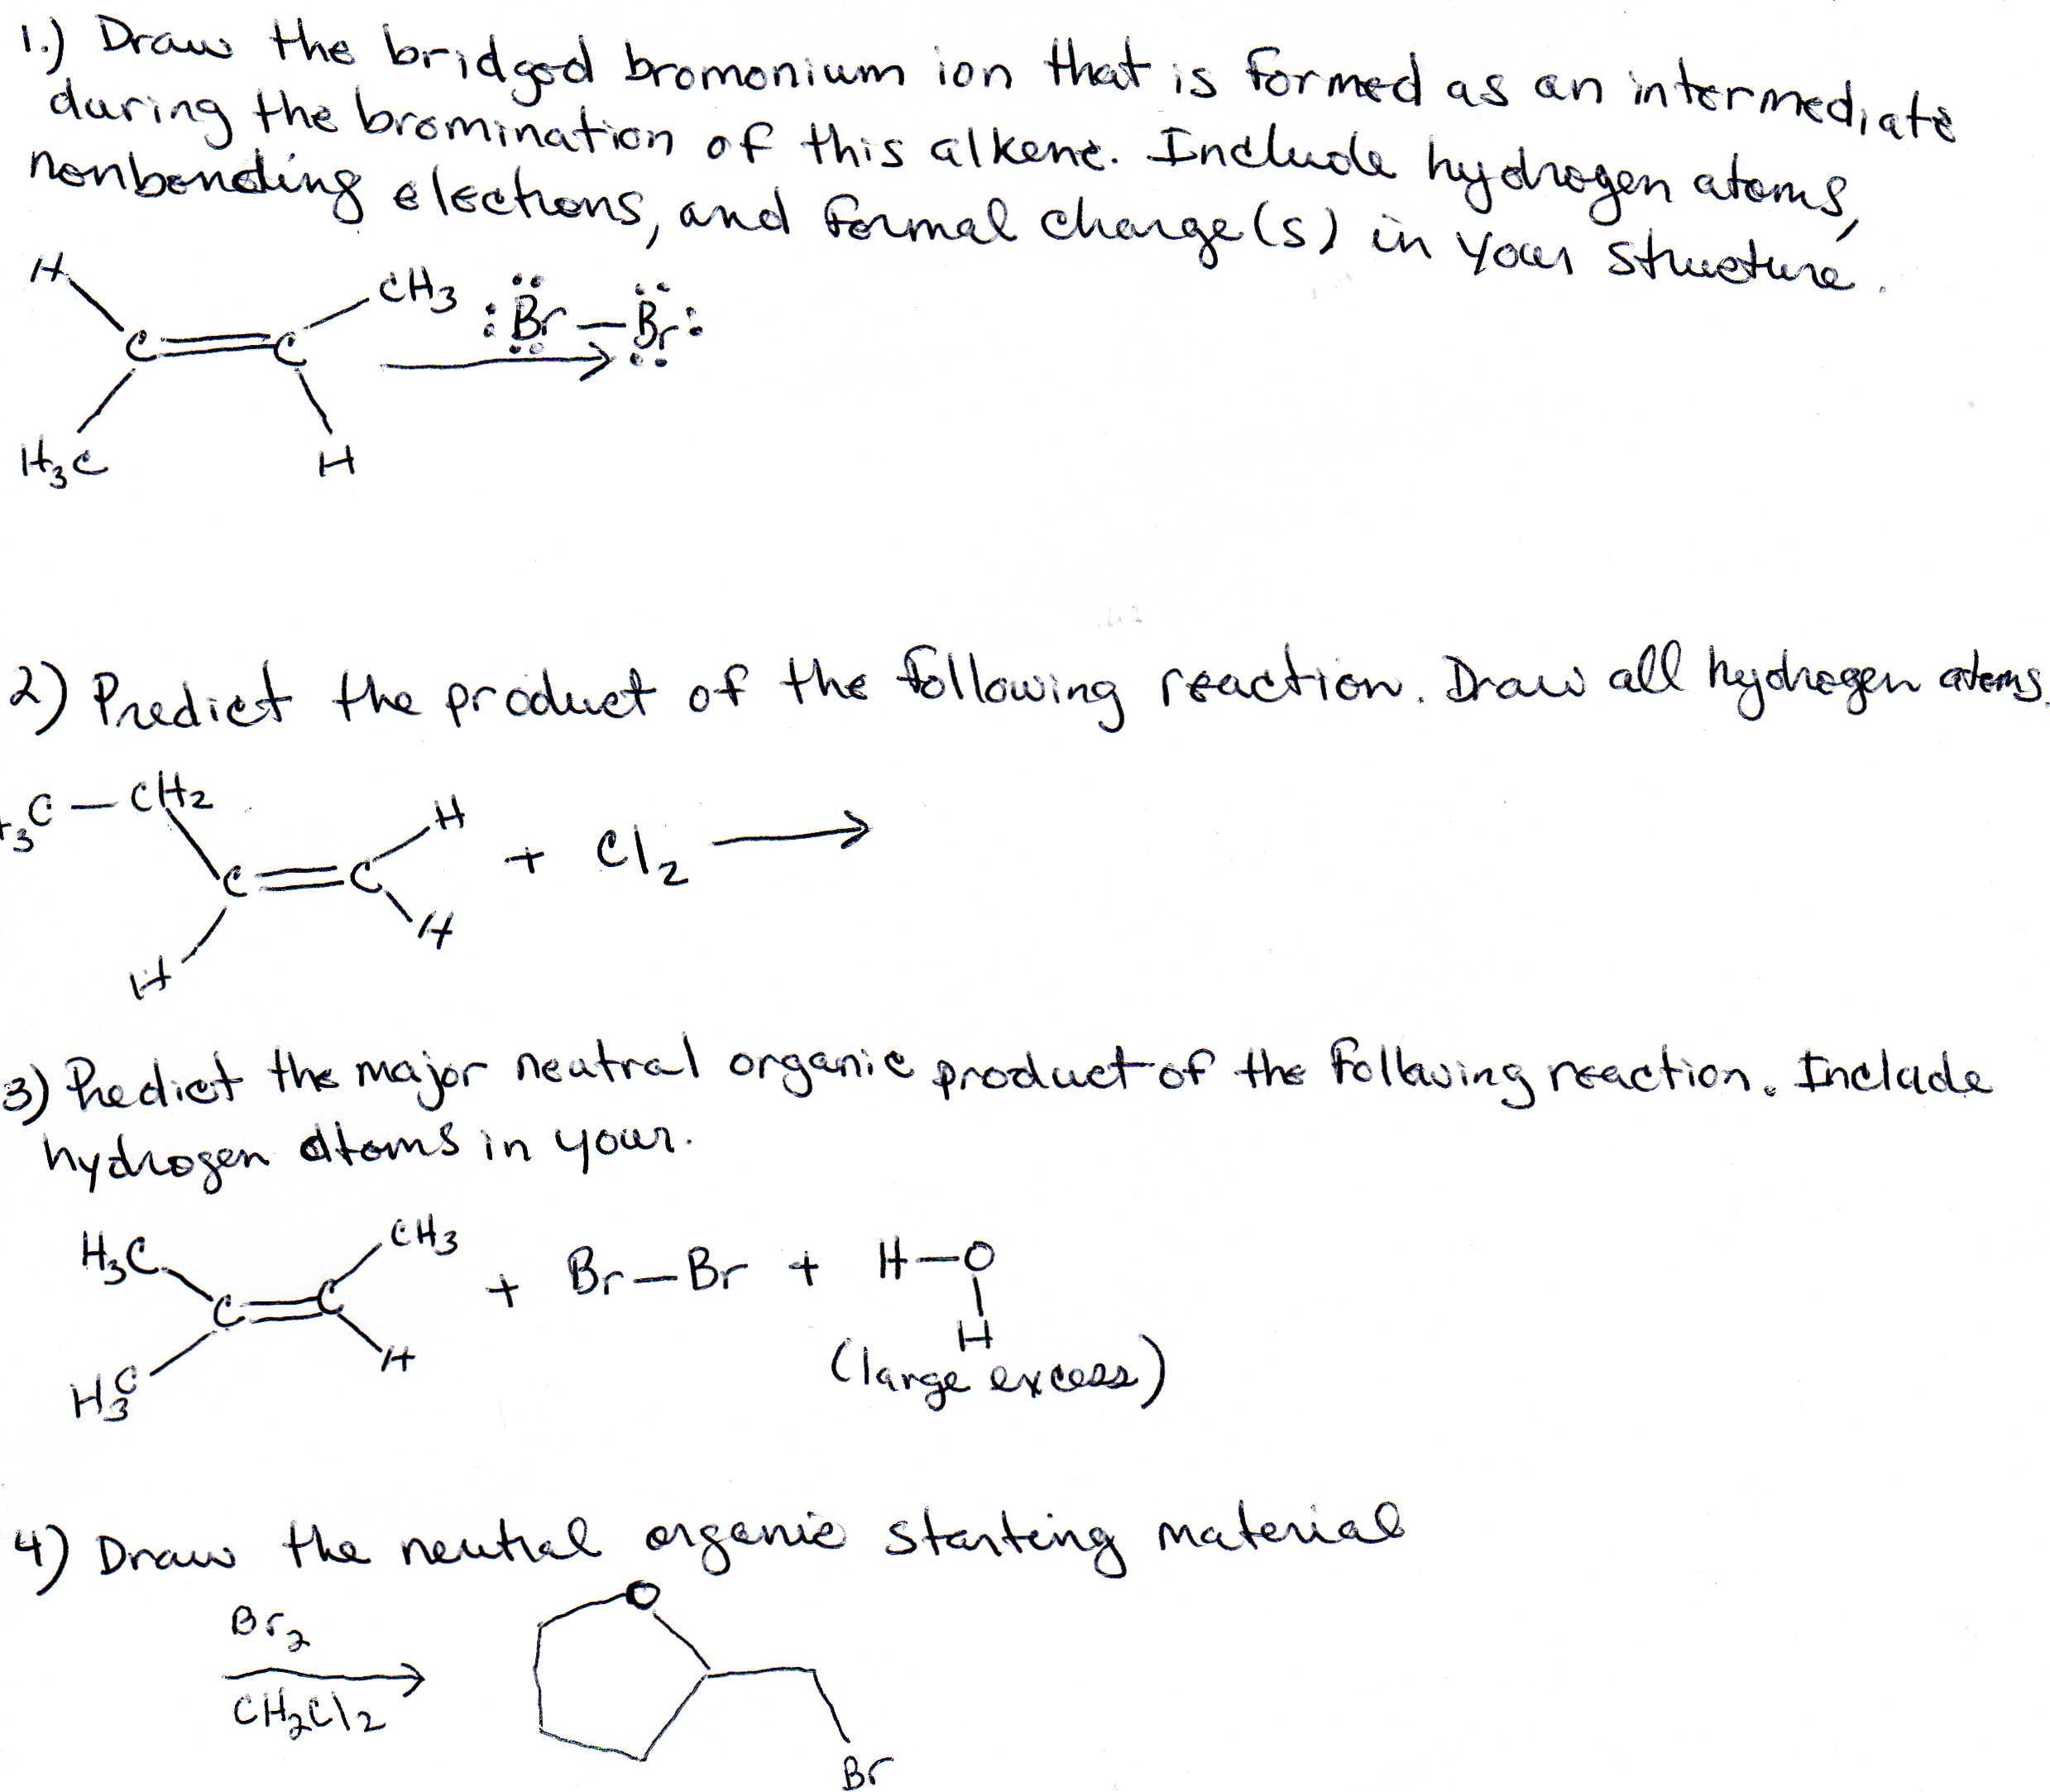 1.) Draw the bridged bromonium ion that is formed as an intermediate
during the bromination of this alkene. Include hydrogen atoms,
nonbonding electrons, and formal charge(s) in your structure.
H
CH3 :Br—Br:
C=C
H3C H
2) Predict the product of the following reaction. Draw all hydrogen atoms.
3C — CH2
H
C=C + Cl2 →
H
H
3) Predict the major neutral organic product of the following reaction. Include
hydrogen atoms in your.
H3C CH3
C=C + Br—Br + H—O
H H
H3C (large excess)
4) Draw the neutral organic starting material
O
Br2
→
CH2Cl2
Br